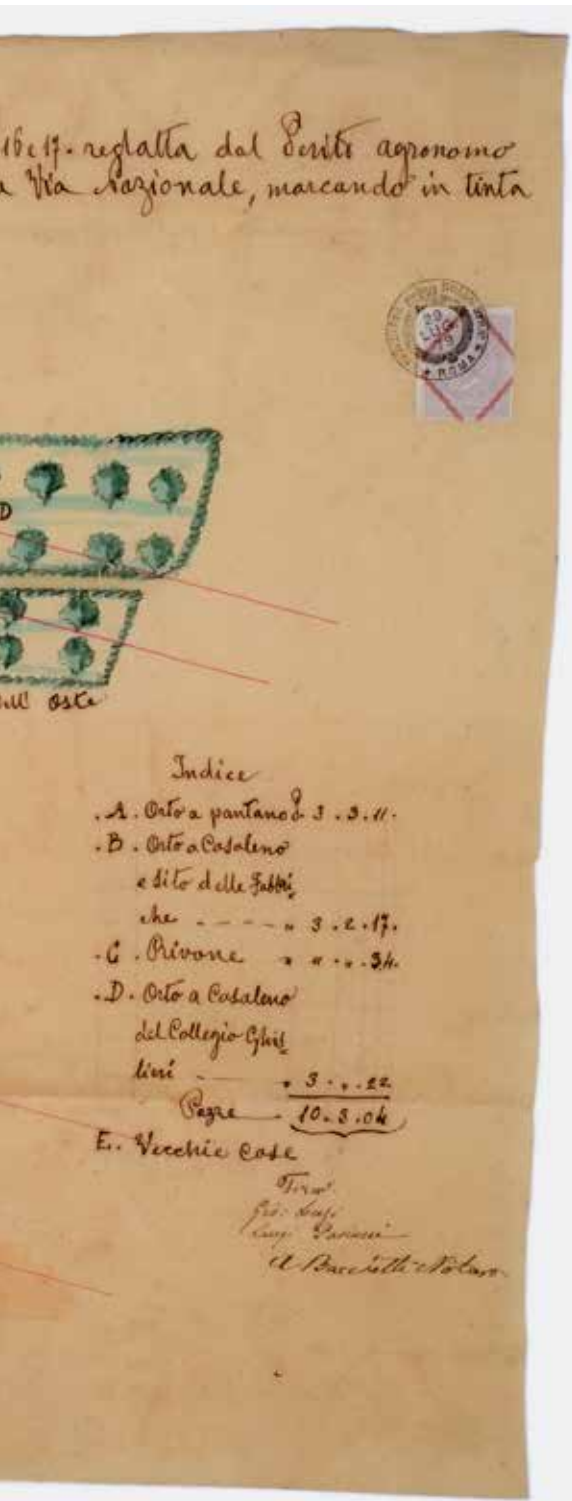 16 e 17. reglatta dal Perito agronomo
a Via Nazionale, marcando in tinta
29
LUG
79
ROMA
D
dell' Oste
Indice
. A. Orto a pantano P. 3 . 3 . 11.
. B. Orto a Casaleno
e sito delle Fabbri
che - - - - „ 3 . 2 . 17.
. C. Rivone „ „ . „ . 34.
. D. Orto a Casaleno
del Collegio Ghis
lini - „ 3 . „ . 22
Pezze 10 . 3 . 04
E. Vecchie Case
Luigi
Notaro